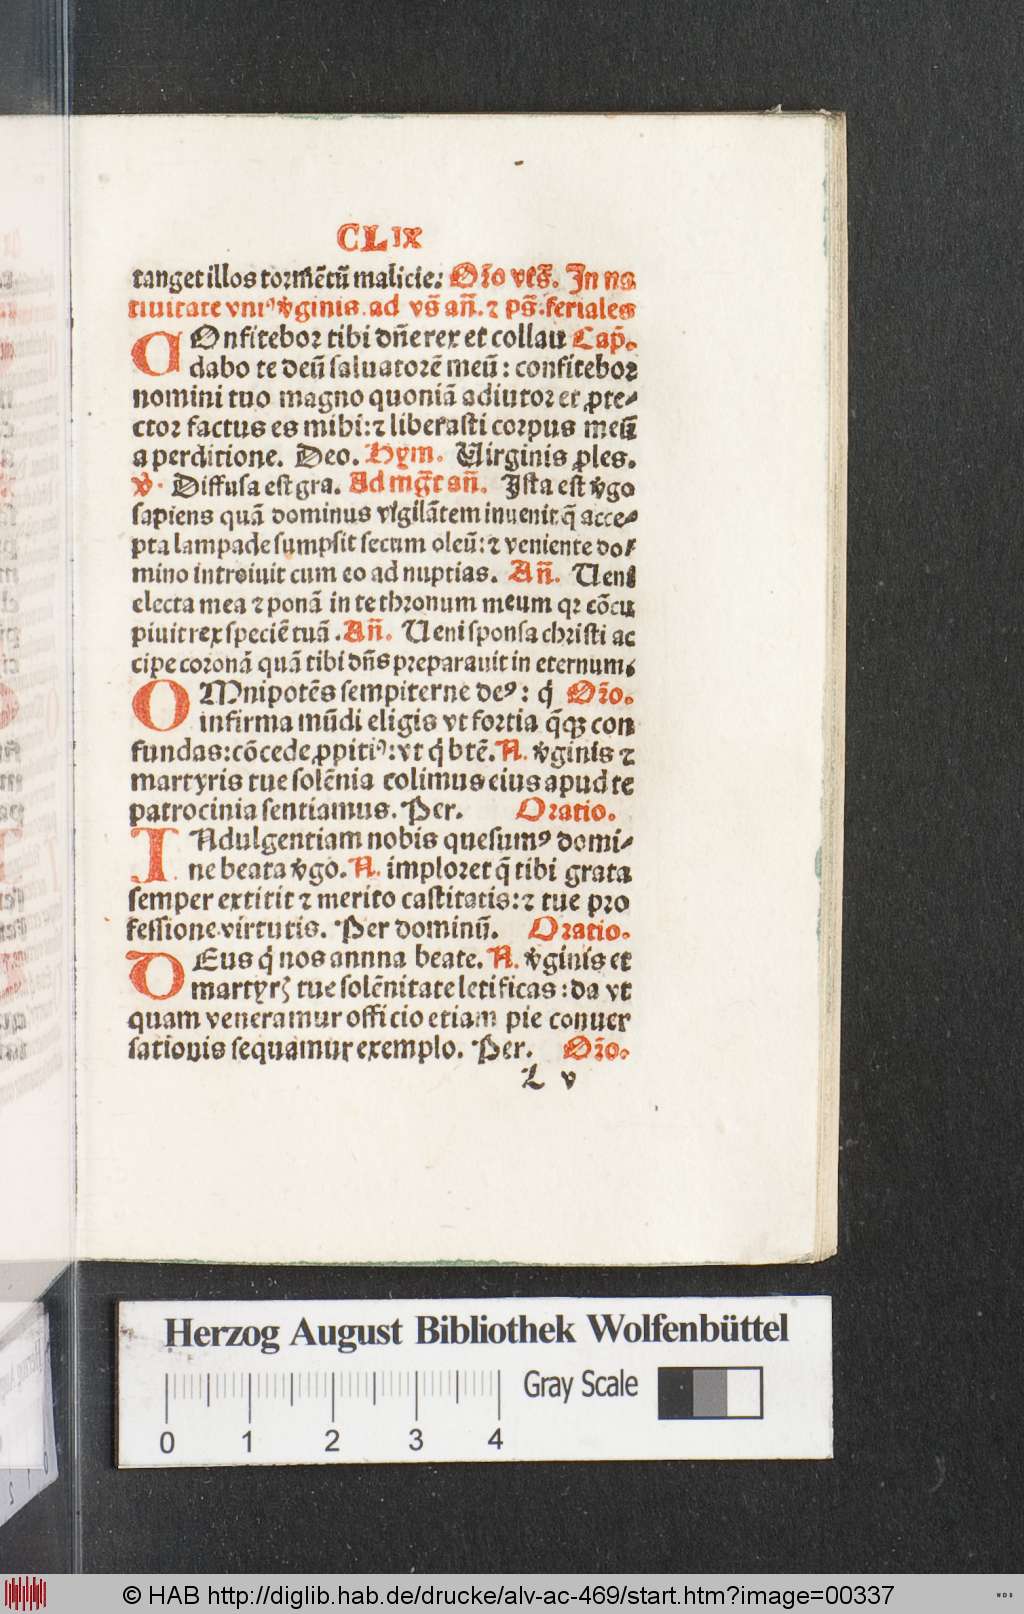 CLIX
tanget illos tormētū malicie: Or̄o ves̄. In na
tiuitate vniꝰ v̾ginis. ad vs̄ añ. ⁊ ps̄. feriales
COnfitebor tibi dn̄e rex et collau Cap̄.
dabo te deū saluatorē meū: confitebor
nomini tuo magno quoniā adiutor et ꝓte-
ctor factus es mihi: ⁊ liberasti corpus meū
a perditione. Deo. Hym. Uirginis ꝓles.
℣. Diffusa est gra. Ad mg̅t añ. Ista est v̾go
sapiens quā dominus vigilātem inuenit q̄ acce-
pta lampade sumpsit secum oleū: ⁊ veniente do-
mino introiuit cum eo ad nuptias. Añ. Ueni
electa mea ⁊ ponā in te thronum meum qr cōcu
piuit rex speciē tuā. Añ. Ueni sponsa christi ac
cipe coronā quā tibi dn̄s preparauit in eternum.
OMnipotēs sempiterne deꝰ: q̇ Or̄o.
infirma mūdi eligis vt fortia q̄qꝫ con
fundas: cōcede ꝓpitiꝰ: vt q̇ btē. N. v̾ginis ⁊
martyris tue solēnia colimus eius apud te
patrocinia sentiamus. Per. Oratio.
INdulgentiam nobis quesumꝰ domi-
ne beata v̾go. N. imploret q̄ tibi grata
semper extitit ⁊ merito castitatis: ⁊ tue pro
fessione virtutis. Per dominū. Oratio.
DEus q̇ nos annna beate. N. v̾ginis et
martyrꝭ tue solēnitate letificas: da vt
quam veneramur officio etiam pie conuer
sationis sequamur exemplo. Per. Or̄o.
L v
Herzog August Bibliothek Wolfenbüttel
0 1 2 3 4 Gray Scale
© HAB http://diglib.hab.de/drucke/alv-ac-469/start.htm?image=00337